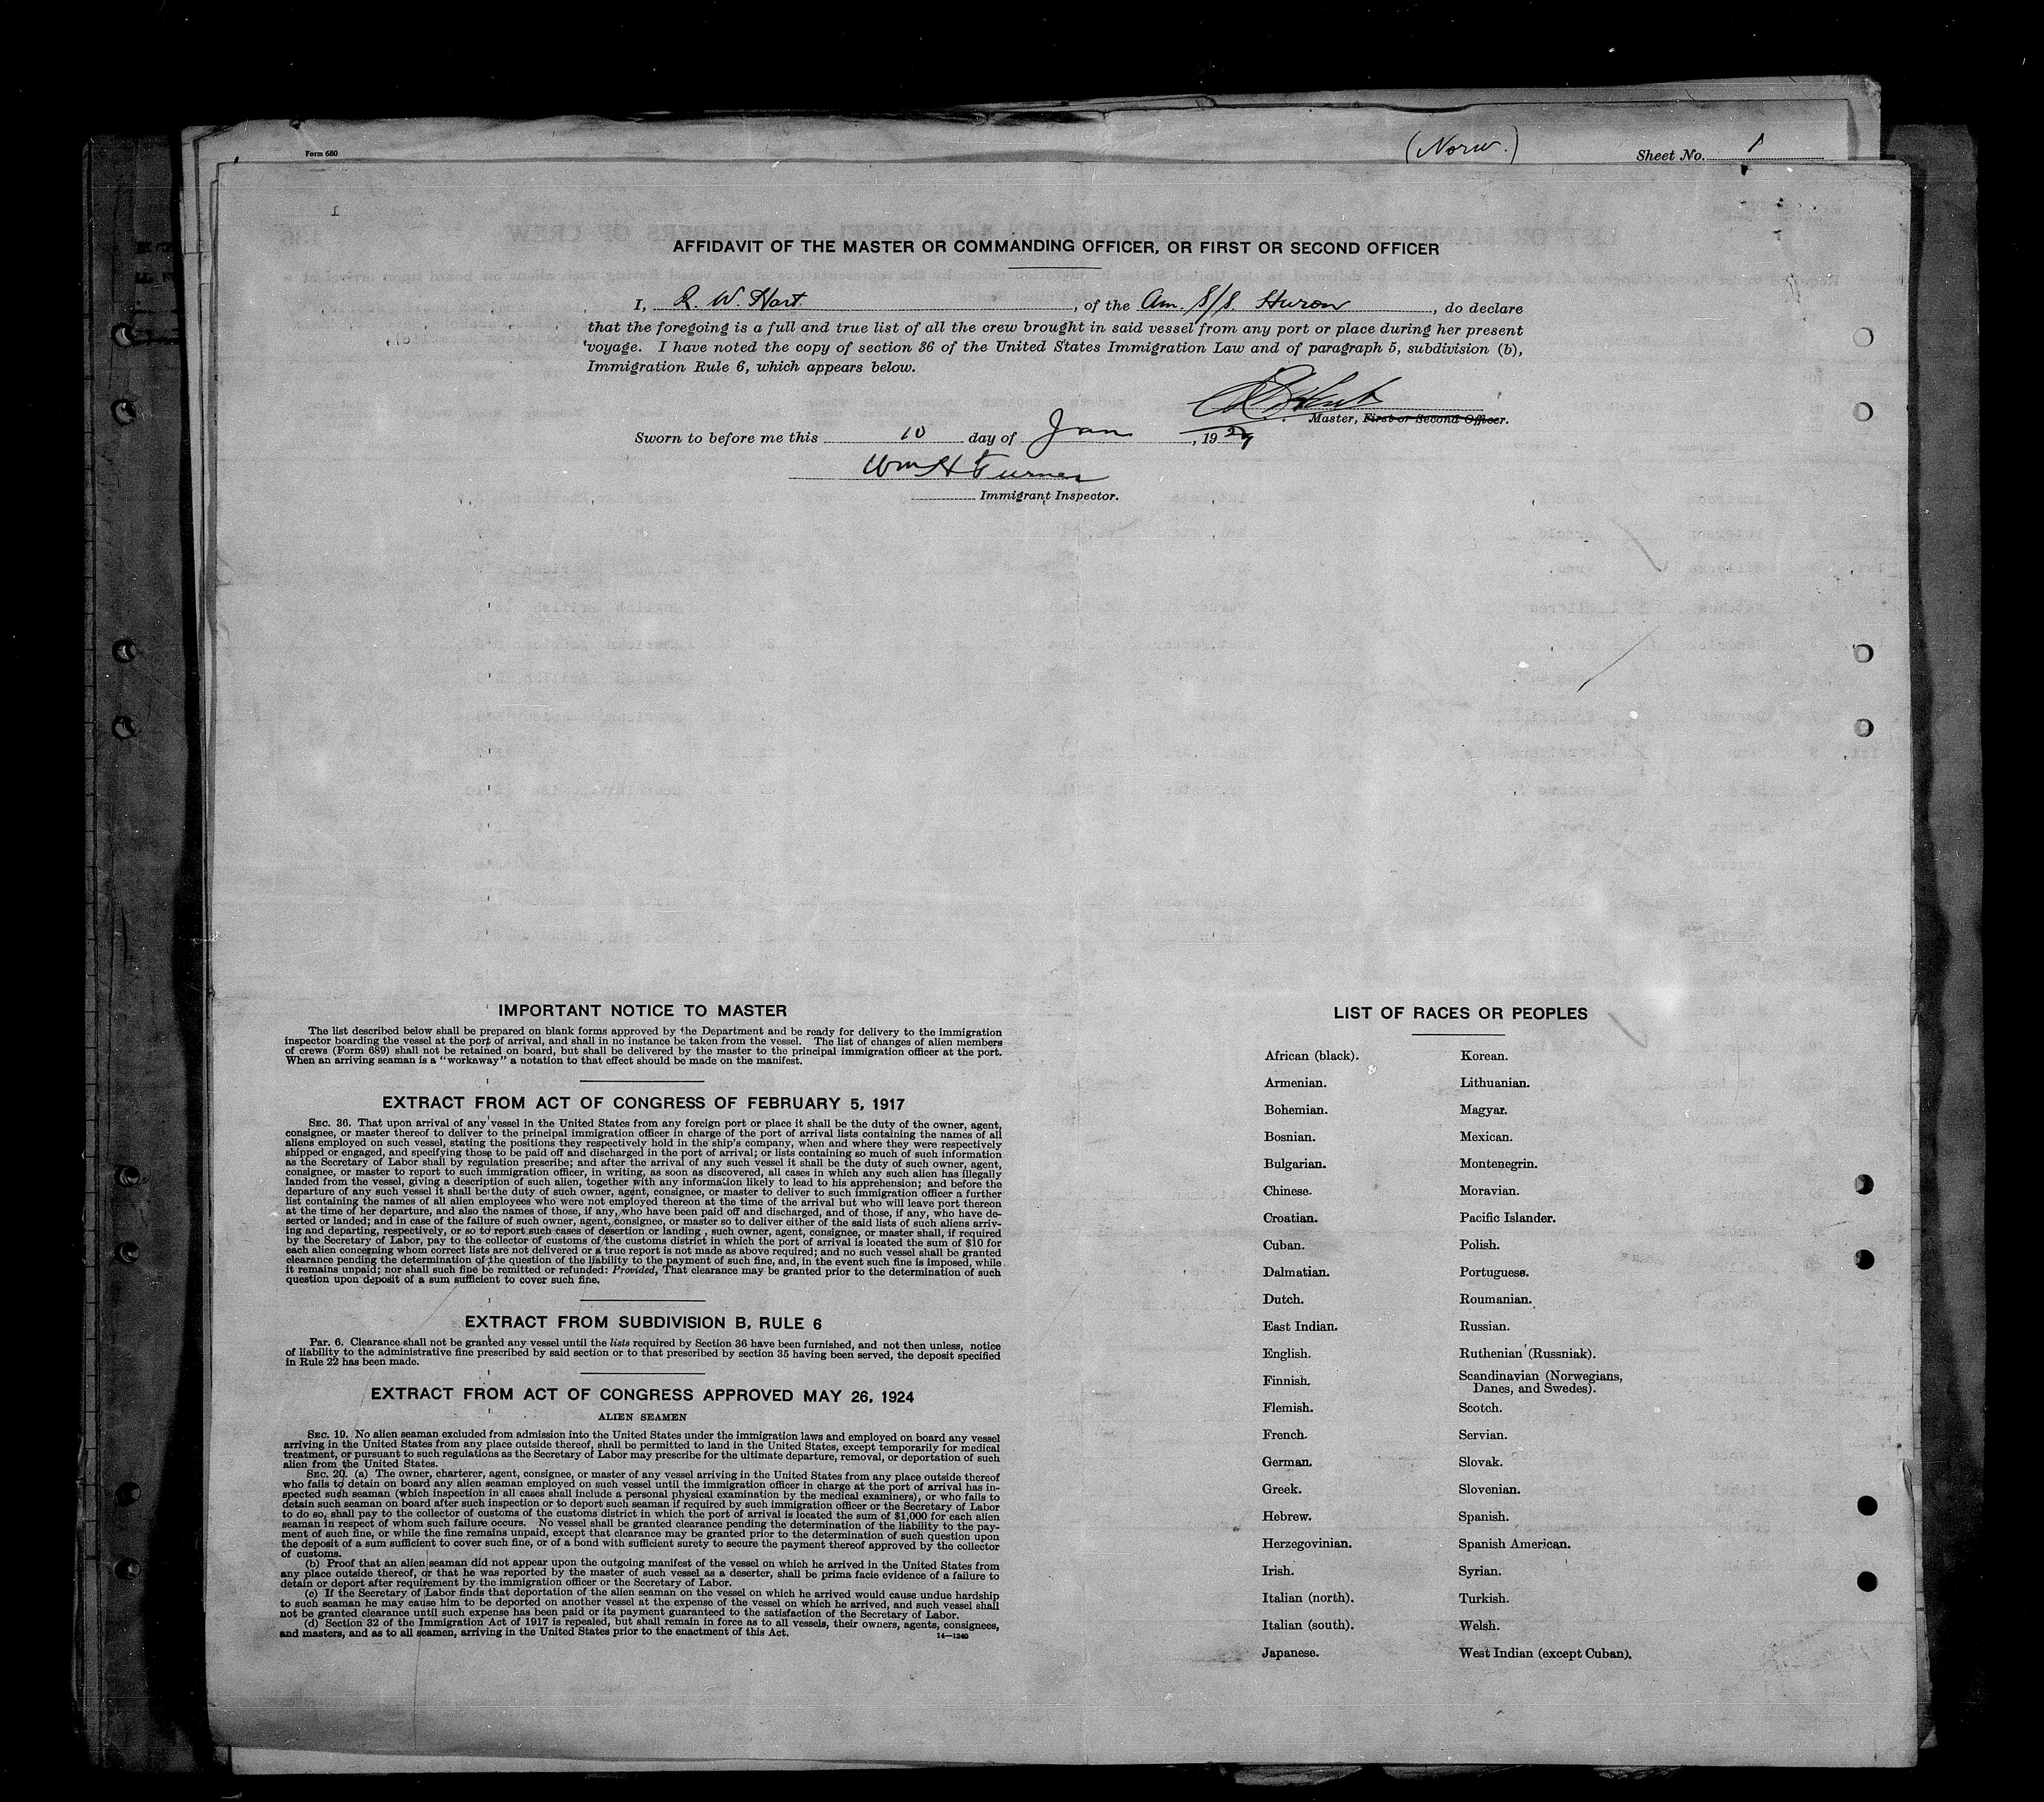 Form 680
(Norw.)
Sheet No. 1
AFFIDAVIT OF THE MASTER OR COMMANDING OFFICER, OR FIRST OR SECOND OFFICER
I, R. W. Hart, of the Am. S/S. Huron, do declare
that the foregoing is a full and true list of all the crew brought in said vessel from any port or place during her present
voyage. I have noted the copy of section 36 of the United States Immigration Law and of paragraph 5, subdivision (b),
Immigration Rule 6, which appears below.
Master, First or Second Officer.
Sworn to before me this 10 day of Jan, 19
Wm H Turner
Immigrant Inspector.
IMPORTANT NOTICE TO MASTER
The list described below shall be prepared on blank forms approved by the Department and be ready for delivery to the immigration
inspector boarding the vessel at the port of arrival, and shall in no instance be taken from the vessel. The list of changes of alien members
of crews (Form 689) shall not be retained on board, but shall be delivered by the master to the principal immigration officer at the port.
When an arriving seaman is a "workaway" a notation to that effect should be made on the manifest.
EXTRACT FROM ACT OF CONGRESS OF FEBRUARY 5, 1917
SEC. 36. That upon arrival of any vessel in the United States from any foreign port or place it shall be the duty of the owner, agent,
consignee, or master thereof to deliver to the principal immigration officer in charge of the port of arrival lists containing the names of all
aliens employed on such vessel, stating the positions they respectively hold in the ship's company, when and where they were respectively
shipped or engaged, and specifying those to be paid off and discharged in the port of arrival; or lists containing so much of such information
as the Secretary of Labor shall by regulation prescribe; and after the arrival of any such vessel it shall be the duty of such owner, agent,
consignee, or master to report to such immigration officer, in writing, as soon as discovered, all cases in which any such alien has illegally
landed from the vessel, giving a description of such alien, together with any information likely to lead to his apprehension; and before the
departure of any such vessel it shall be the duty of such owner, agent, consignee, or master to deliver to such immigration officer a further
list containing the names of all alien employees who were not employed thereon at the time of the arrival but who will leave port thereon
at the time of her departure, and also the names of those, if any, who have been paid off and discharged, and of those, if any, who have de-
serted or landed; and in case of the failure of such owner, agent, consignee, or master so to deliver either of the said lists of such aliens arriv-
ing and departing, respectively, or so to report such cases of desertion or landing , such owner, agent, consignee, or master shall, if required
by the Secretary of Labor, pay to the collector of customs of the customs district in which the port of arrival is located the sum of $10 for
each alien concerning whom correct lists are not delivered or a true report is not made as above required; and no such vessel shall be granted
clearance pending the determination of the question of the liability to the payment of such fine, and, in the event such fine is imposed, while
it remains unpaid; nor shall such fine be remitted or refunded: Provided, That clearance may be granted prior to the determination of such
question upon deposit of a sum sufficient to cover such fine.
EXTRACT FROM SUBDIVISION B, RULE 6
Par. 6. Clearance shall not be granted any vessel until the lists required by Section 36 have been furnished, and not then unless, notice
of liability to the administrative fine prescribed by said section or to that prescribed by section 35 having been served, the deposit specified
in Rule 22 has been made.
EXTRACT FROM ACT OF CONGRESS APPROVED MAY 26, 1924
ALIEN SEAMEN
SEC. 19. No alien seaman excluded from admission into the United States under the immigration laws and employed on board any vessel
arriving in the United States from any place outside thereof, shall be permitted to land in the United States, except temporarily for medical
treatment, or pursuant to such regulations as the Secretary of Labor may prescribe for the ultimate departure, removal, or deportation of such
alien from the United States.
SEC. 20. (a) The owner, charterer, agent, consignee, or master of any vessel arriving in the United States from any place outside thereof
who fails to detain on board any alien seaman employed on such vessel until the immigration officer in charge at the port of arrival has in-
spected such seaman (which inspection in all cases shall include a personal physical examination by the medical examiners), or who fails to
detain such seaman on board after such inspection or to deport such seaman if required by such immigration officer or the Secretary of Labor
to do so, shall pay to the collector of customs of the customs district in which the port of arrival is located the sum of $1,000 for each alien
seaman in respect of whom such failure occurs. No vessel shall be granted clearance pending the determination of the liability to the pay-
ment of such fine, or while the fine remains unpaid, except that clearance may be granted prior to the determination of such question upon
the deposit of a sum sufficient to cover such fine, or of a bond with sufficient surety to secure the payment thereof approved by the collector
of customs.
(b) Proof that an alien seaman did not appear upon the outgoing manifest of the vessel on which he arrived in the United States from
any place outside thereof, or that he was reported by the master of such vessel as a deserter, shall be prima facie evidence of a failure to
detain or deport after requirement by the immigration officer or the Secretary of Labor.
(c) If the Secretary of Labor finds that deportation of the alien seaman on the vessel on which he arrived would cause undue hardship
to such seaman he may cause him to be deported on another vessel at the expense of the vessel on which he arrived, and such vessel shall
not be granted clearance until such expense has been paid or its payment guaranteed to the satisfaction of the Secretary of Labor.
(d) Section 32 of the Immigration Act of 1917 is repealed, but shall remain in force as to all vessels, their owners, agents, consignees,
and masters, and as to all seamen, arriving in the United States prior to the enactment of this Act.
14—1240
LIST OF RACES OR PEOPLES
African (black).
Armenian.
Bohemian.
Bosnian.
Bulgarian.
Chinese.
Croatian.
Cuban.
Dalmatian.
Dutch.
East Indian.
English.
Finnish.
Flemish.
French.
German.
Greek.
Hebrew.
Herzegovinian.
Irish.
Italian (north).
Italian (south).
Japanese.
Korean.
Lithuanian.
Magyar.
Mexican.
Montenegrin.
Moravian.
Pacific Islander.
Polish.
Portuguese.
Roumanian.
Russian.
Ruthenian (Russniak).
Scandinavian (Norwegians,
Danes, and Swedes).
Scotch.
Servian.
Slovak.
Slovenian.
Spanish.
Spanish American.
Syrian.
Turkish.
Welsh.
West Indian (except Cuban).